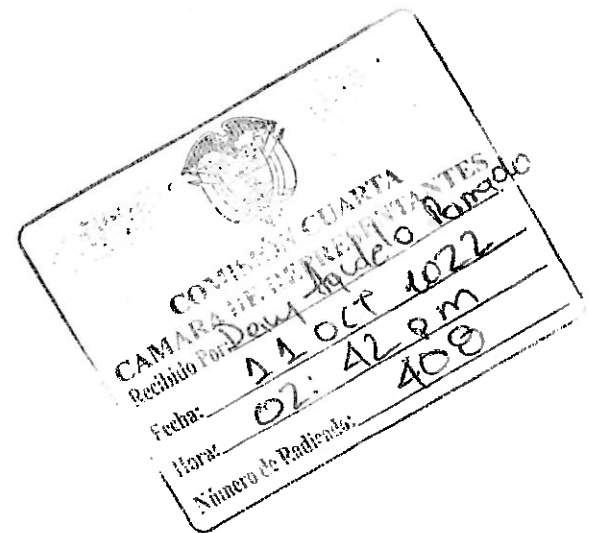 COMISIÓN CUARTA
CAMARA DE REPRESENTANTES
Recibido Por: Deisy Agudelo
Fecha: 11 OCT 2022
Hora: 02:42 pm
Número de Radicado: 408